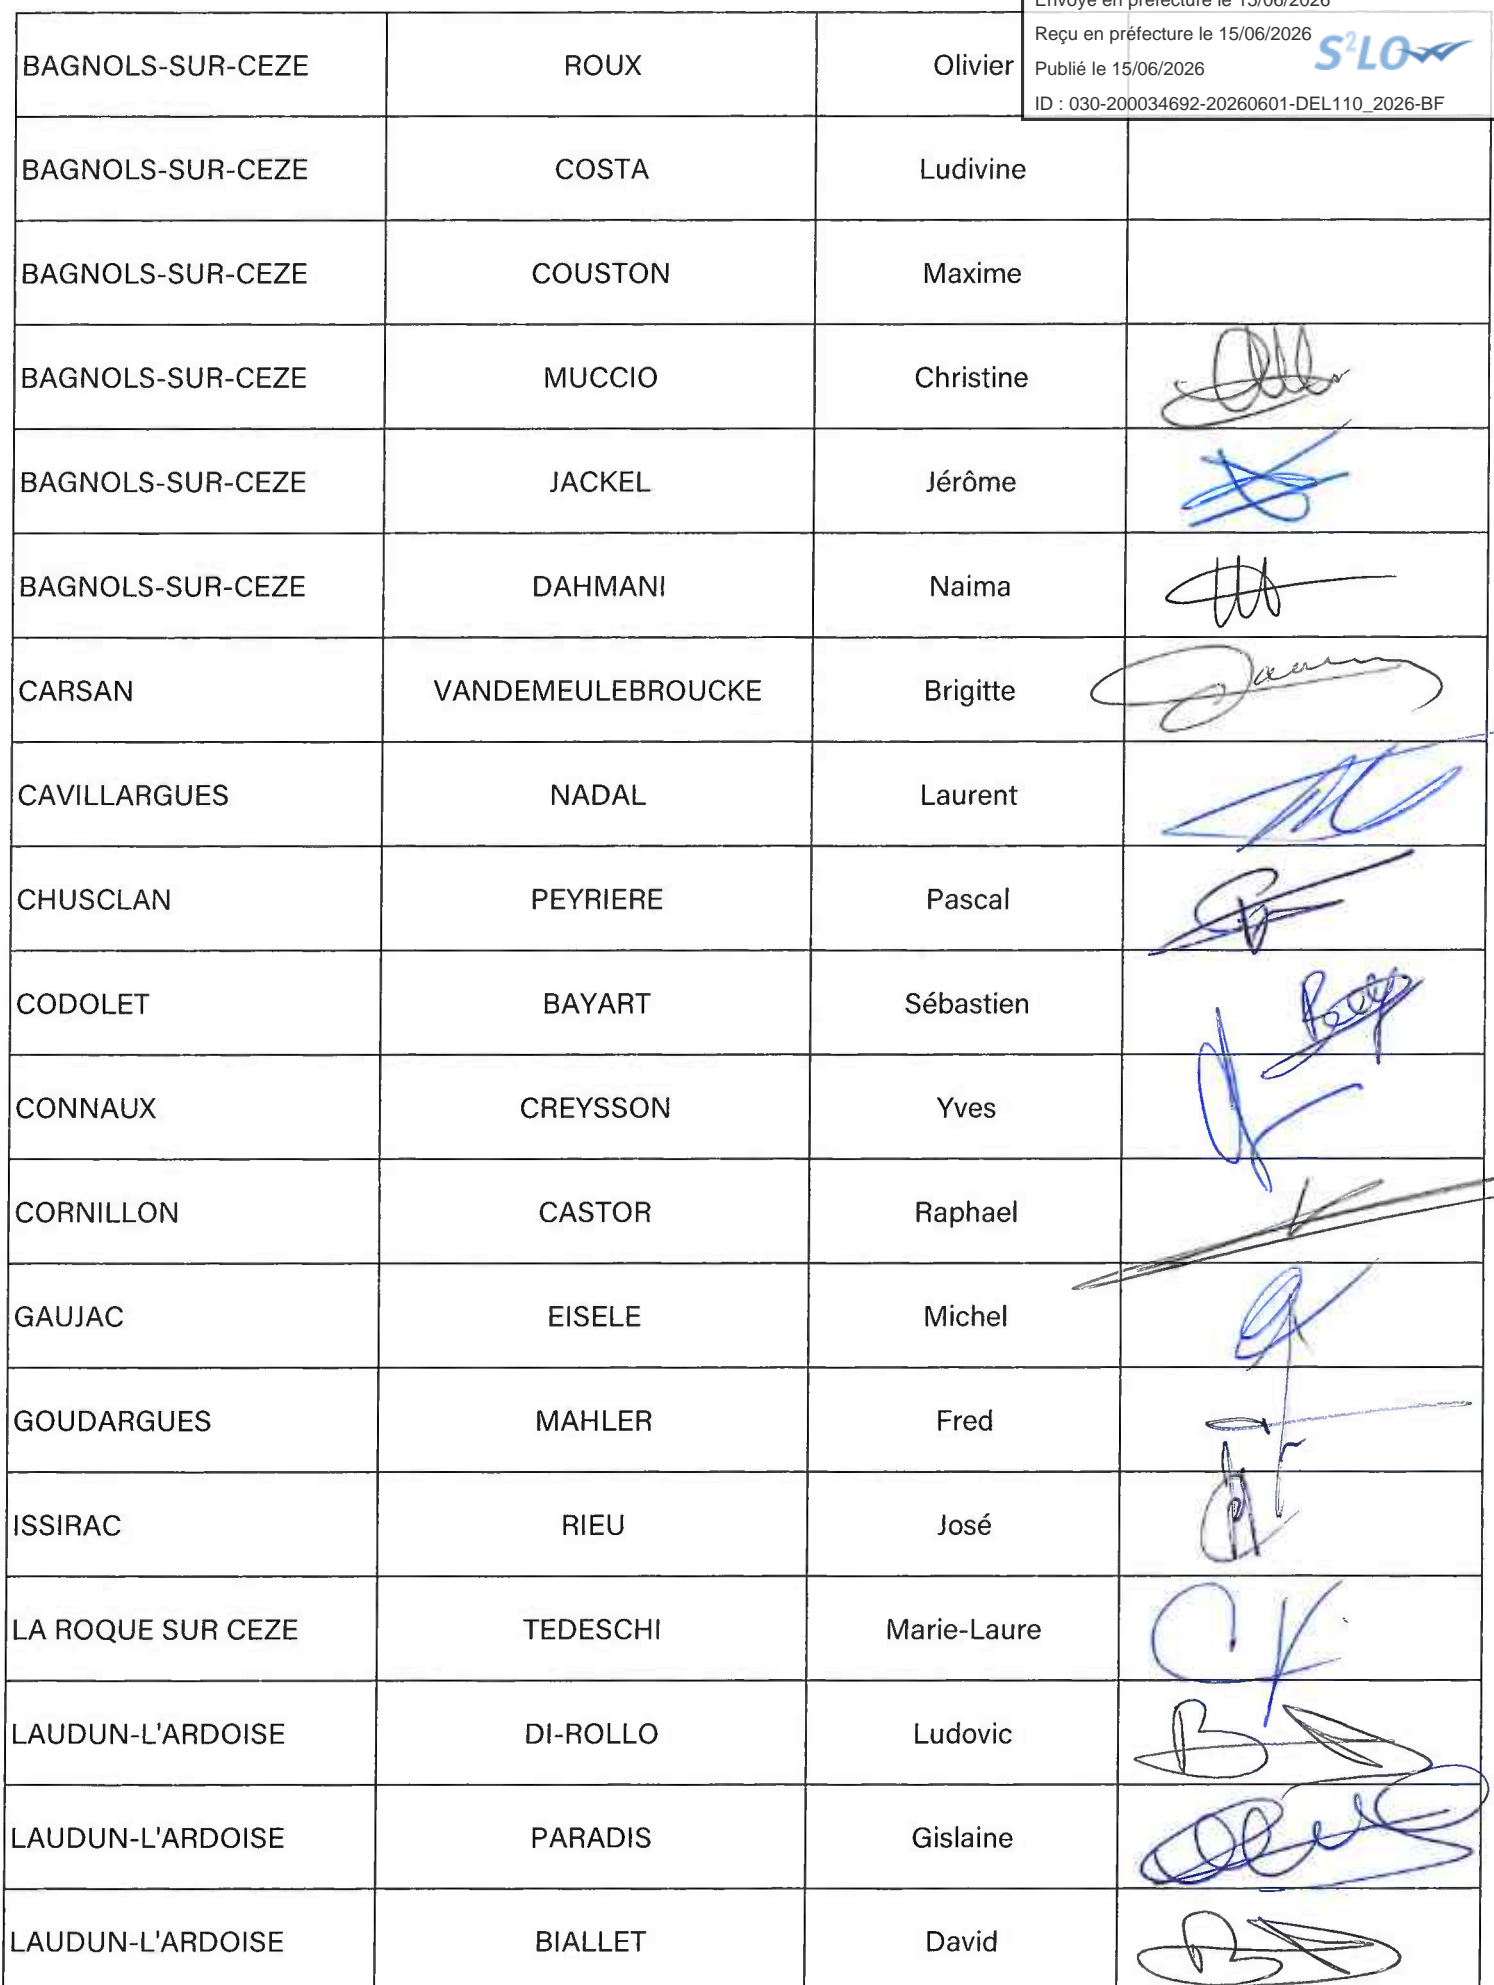 Envoyé en préfecture le 15/06/2026
Reçu en préfecture le 15/06/2026
S²LO
Publié le 15/06/2026
ID : 030-200034692-20260601-DEL110_2026-BF
BAGNOLS-SUR-CEZE ROUX Olivier
BAGNOLS-SUR-CEZE COSTA Ludivine
BAGNOLS-SUR-CEZE COUSTON Maxime
BAGNOLS-SUR-CEZE MUCCIO Christine
BAGNOLS-SUR-CEZE JACKEL Jérôme
BAGNOLS-SUR-CEZE DAHMANI Naima
CARSAN VANDEMEULEBROUCKE Brigitte
CAVILLARGUES NADAL Laurent
CHUSCLAN PEYRIERE Pascal
CODOLET BAYART Sébastien
CONNAUX CREYSSON Yves
CORNILLON CASTOR Raphael
GAUJAC EISELE Michel
GOUDARGUES MAHLER Fred
ISSIRAC RIEU José
LA ROQUE SUR CEZE TEDESCHI Marie-Laure
LAUDUN-L'ARDOISE DI-ROLLO Ludovic
LAUDUN-L'ARDOISE PARADIS Gislaine
LAUDUN-L'ARDOISE BIALLET David